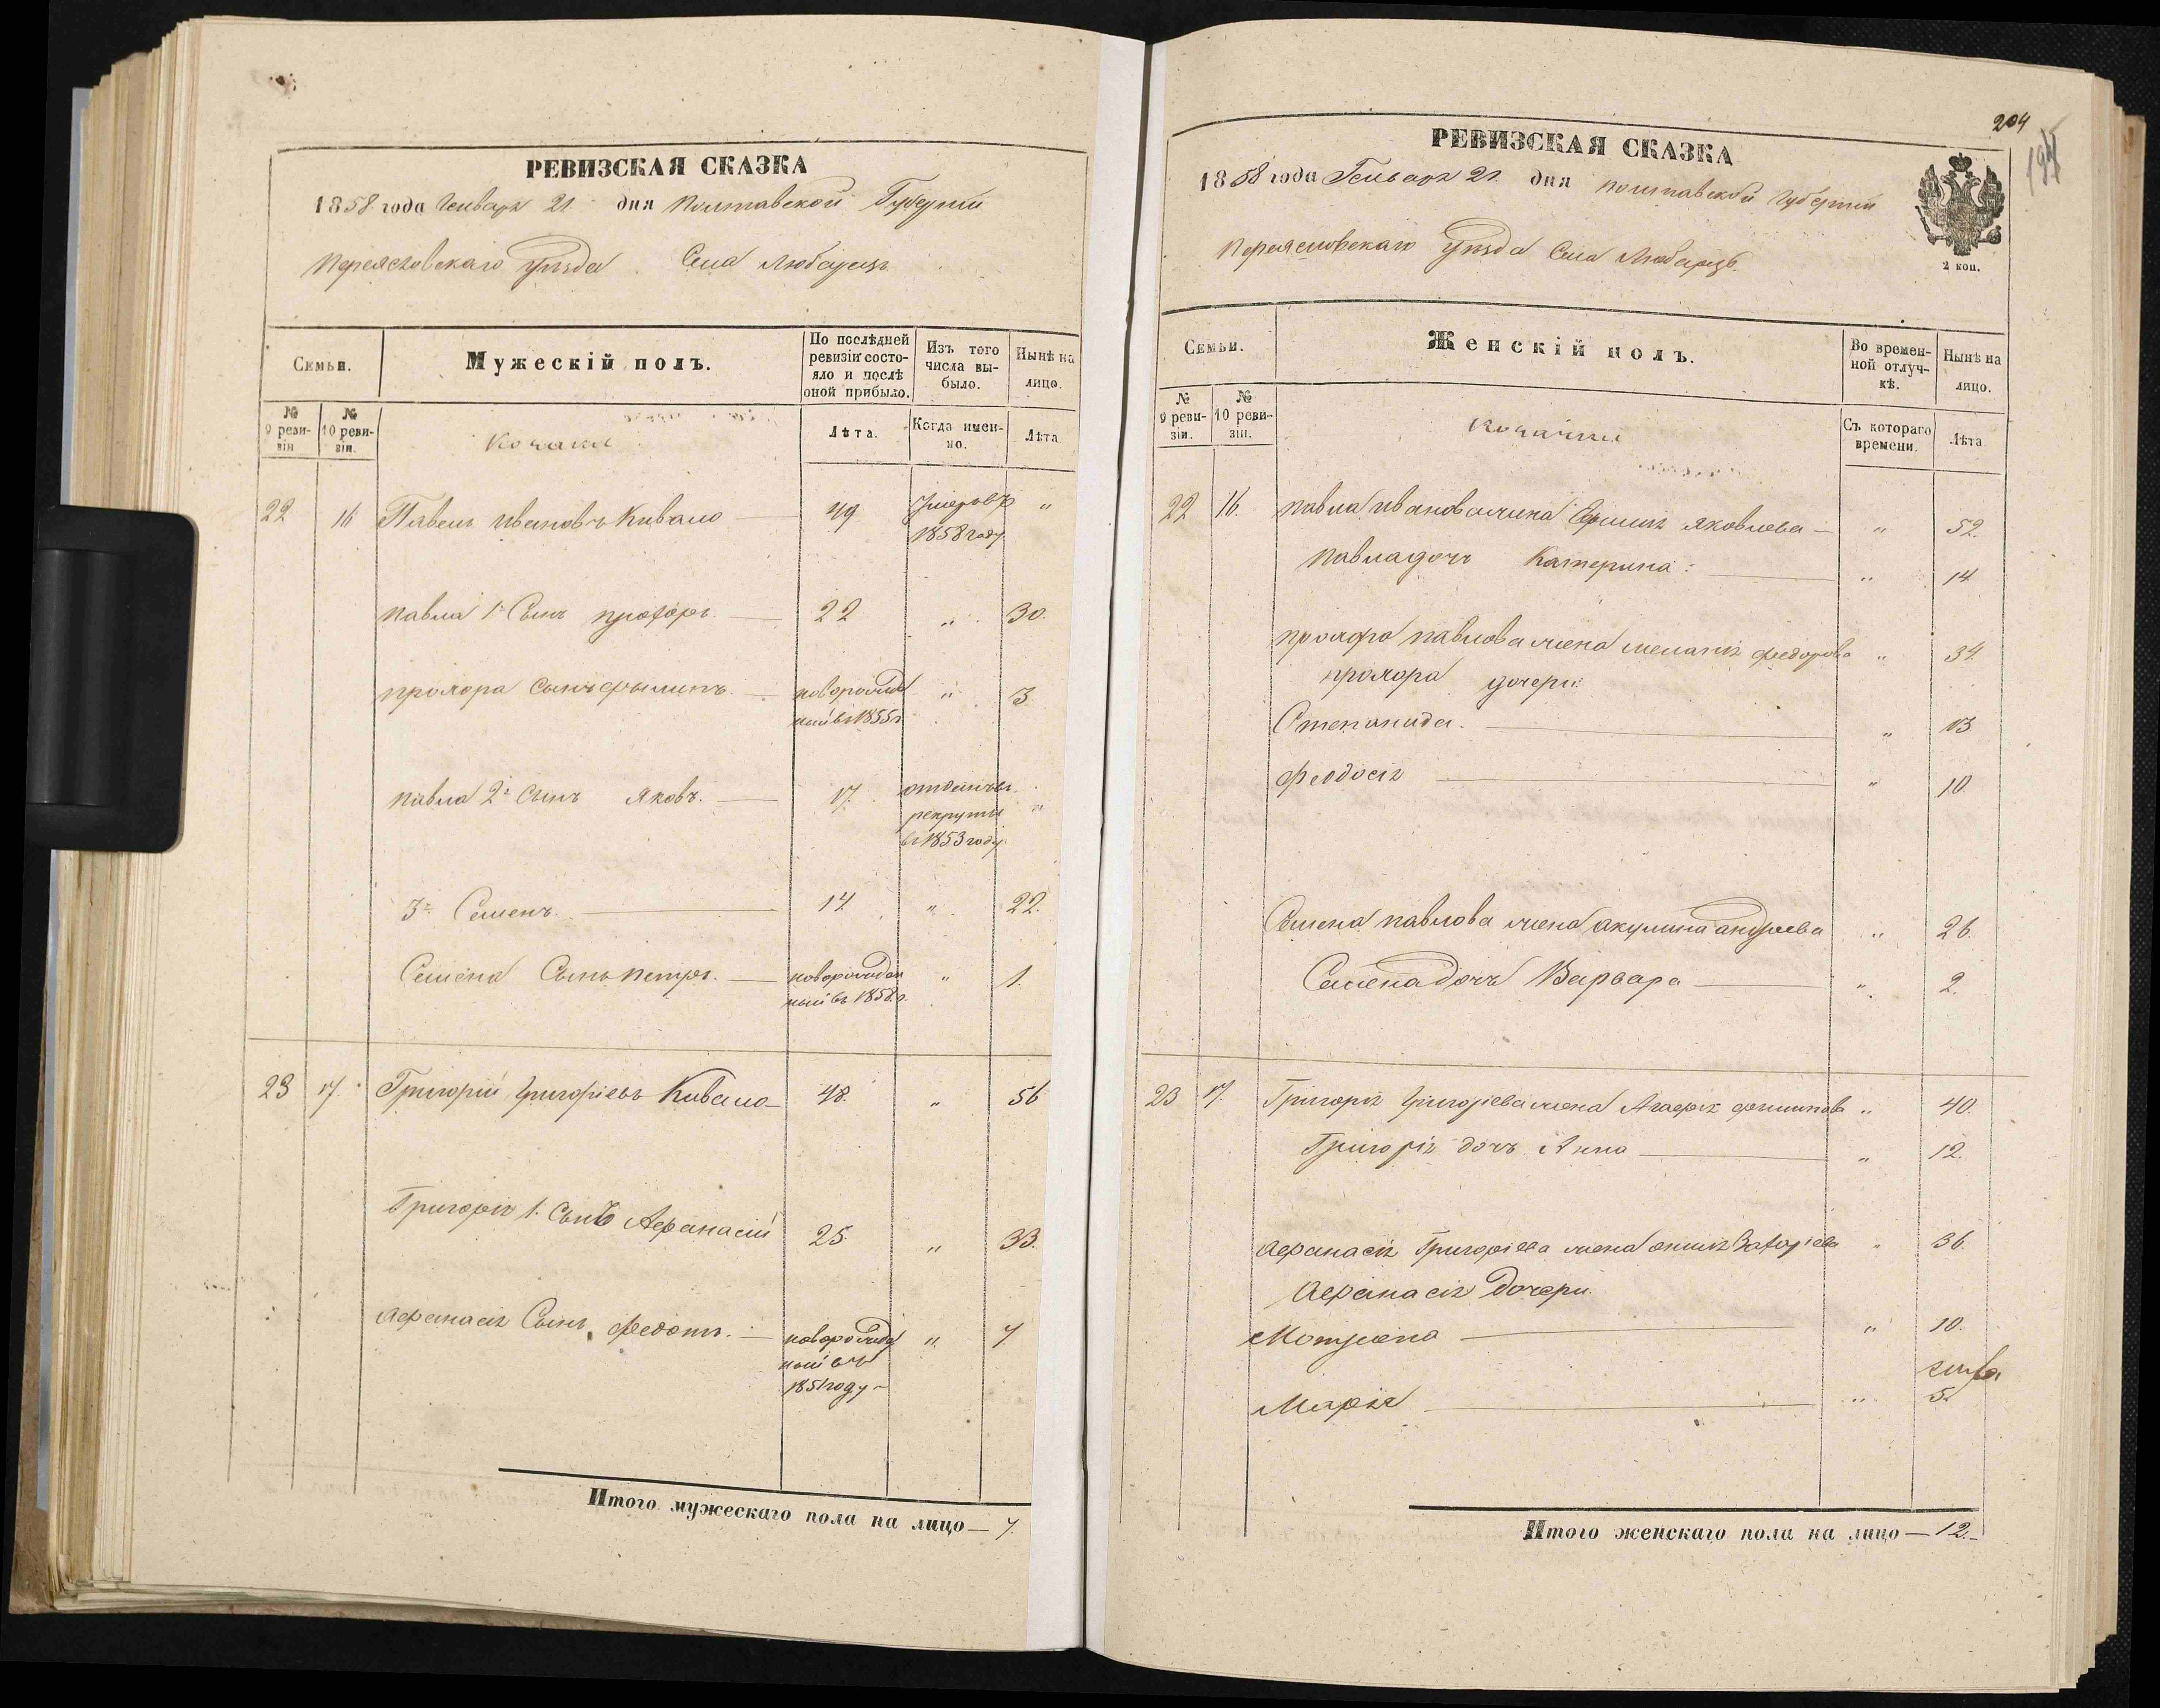 РЕВИЗСКАЯ СКАЗКА
1858 года Генваря 21 дня Полтавской Губерніи
Переясловскаго уѣзда Села Любарецъ
Семьи.
Мужескій полъ.
По послѣдней ревизіи состояло и послѣ оной прибыло.
Изъ того числа выбыло.
Нынѣ на лицо.
№ 9 ревизіи
№ 10 ревизіи.
Козаки
Лѣта.
Когда именно.
Лѣта.
22 16 Павелъ Ивановъ Кивало 49 умеръ въ 1858 году "
Павла 1й Сынъ прохоръ 22 " 30.
прохора Сынъ филипъ новорожденный въ 1855 г. " 3
павла 2й Сынъ Яковъ. 17. отданъ въ рекруты въ 1853 году "
3й Семенъ 14 " 22.
Семена Сынъ петръ. новорожденный въ 1858 г. " 1.
23 17. Григорій Григоріевъ Кивало 48. " 56
Григорія 1. Сынъ Афанасій 25. " 33.
Афанасія Сынъ, Федотъ. новорожденный въ 1851 году " 7
Итого мужескаго пола на лицо — 7.
204
РЕВИЗСКАЯ СКАЗКА
1858 года Генваря 21. дня полтавской Губерніи
Переясловскаго уѣзда Села Любарецъ.
2 коп.
Семьи.
Женскій полъ.
Во временной отлучкѣ.
Нынѣ на лицо.
№ 9 ревизіи.
№ 10 ревизіи.
Козачки
Съ котораго времени.
Лѣта
22 16. павла Иванова жена Яковлева " 52.
Павла дочь Катерина: " 14
павлова жена меланія федорова " 34.
прохора дочери:
Степанида. " 13
Феодосія " 10.
Семена павлова жена акулина андреева " 26.
Семена дочь Варвара " 2.
23 17. Григорія Григоріева жена Агафія " 40.
Григорія дочь Анна " 12.
Афанасія Григоріева жена " 36.
Афанасія дочери
Мотрона " 10.
Марія " 5.
Итого женскаго пола на лицо — 12.